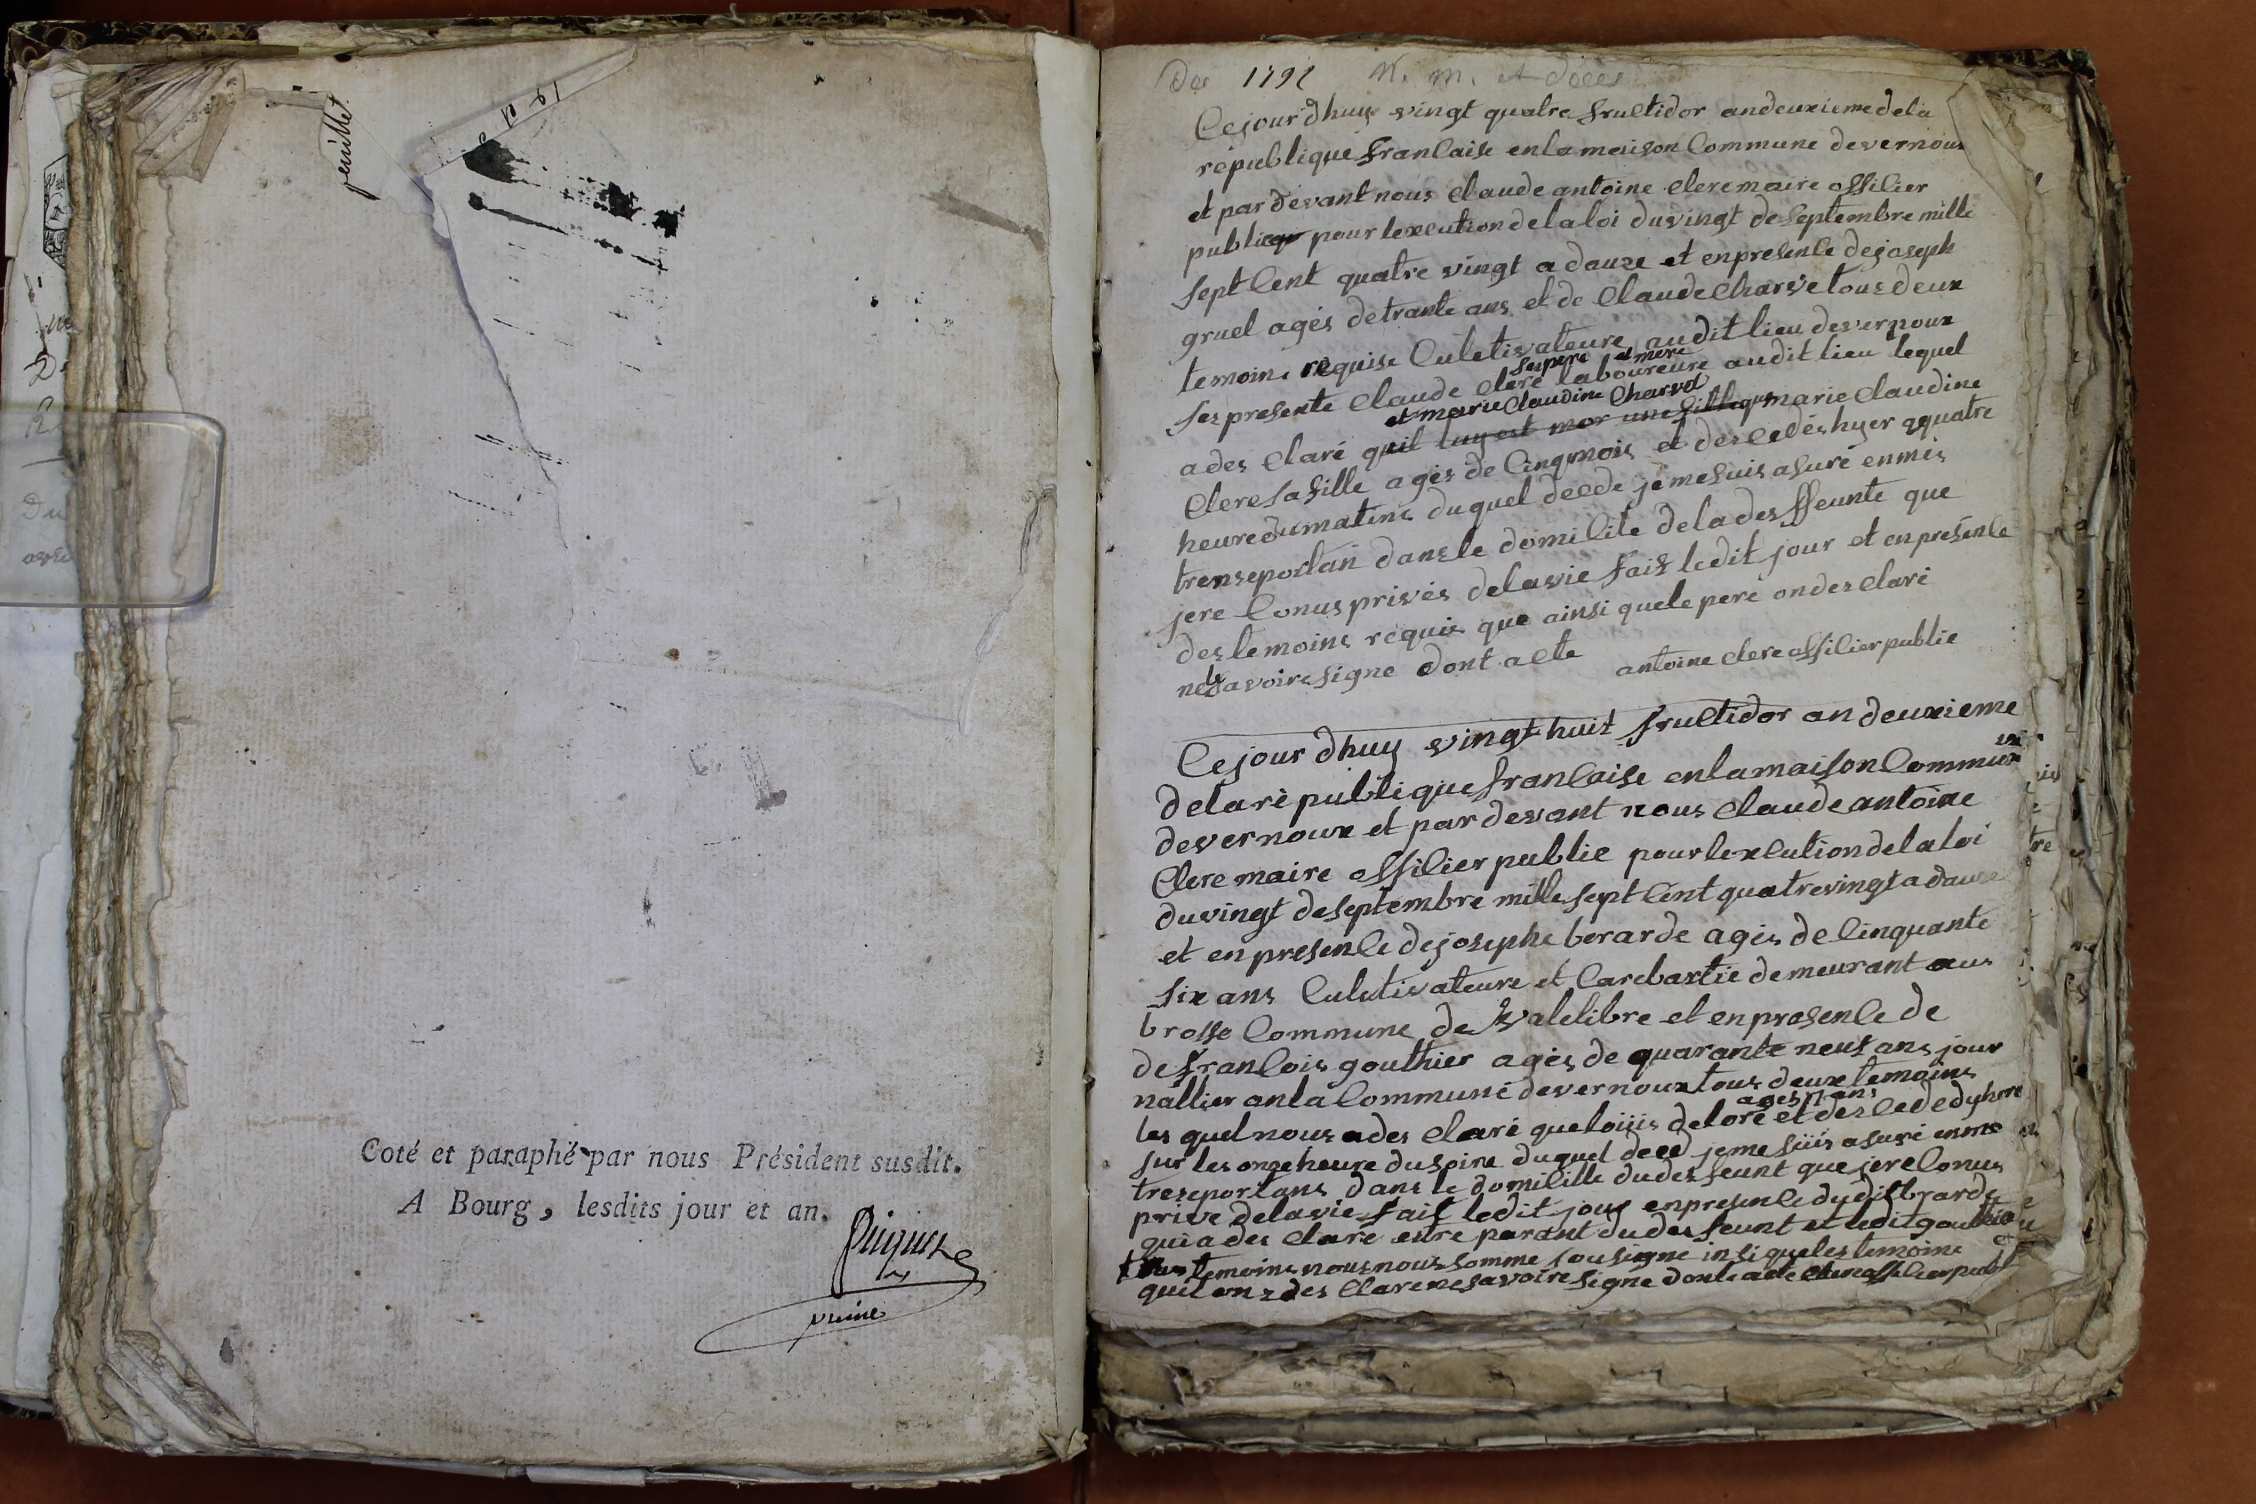 feuillet
Coté et paraphé par nous Président susdit.
A Bourg, lesdits jour et an.
De 1792 N. M. et déces
Cejourdhuy vingt quatre fructidor andeuxieme dela
république francaise enlamaison Commune devernoux
et pardevant nous Claude antoine Clere maire officier
public pour lexcution delaloi duvingt deseptembre mille
sept Cent quatre vingt adouze et enpresence dejoseph
gruel agés detrante ans et de Claude Charve tous deux
temoins requise Culutivateure audit lieu devernoux
sespresente Claude Clere laboureure audit lieu lequel
ses pere et mere
et marie Claudine Charvet
ades Claré quil luy est mor une fille que marie Claudine
Clere safille agés de Cinqmois et desCedés hyer aquatre
heuredumatins duquel decede jemesuis asuré enmes
trenseportan dansle domicile deladesffeunte que
jere Conus privés delavie fais ledit jour et enprésence
destemoins requis que ainsi quele pere ondesclaré
ne savoire signe dont acte antoine clere officierpublic
Cejour dhuy vingt huit fructidor an deuxieme
delarépublique francaise enlamaison Commune
devernoux et pardevant nous Claude antoine
Clere maire officier public pour lexcution delaloi
duvingt deseptembre mille sept Cent quatrevingt adouze
et enpresence dejosephe berarde agés deCinquante
six ans Culutivateure et Carebastié demeurant aus
brosse Commune de valelibre et enprasence de
defrancois gouthier agés de quarante neuf ans jour
nallier anla Communé devernoux tous deux temoins
ages 71 ans
les quel nous ades Claré queloüis deloré et des cededyhere
sur les onzeheure dusoire duquel deced jeme süis asuré enme
treseportans dans le domicille dudesfeunt que jereConus
prive delavie fait ledit jour enpresence dydit brarde
quia des Claré estre parant dudesfeunt et ledit gouthie
temoins nous nous somme sousigne insi queles temoins
quil onz des Clare ne savoire signe dont acte clere officier publ